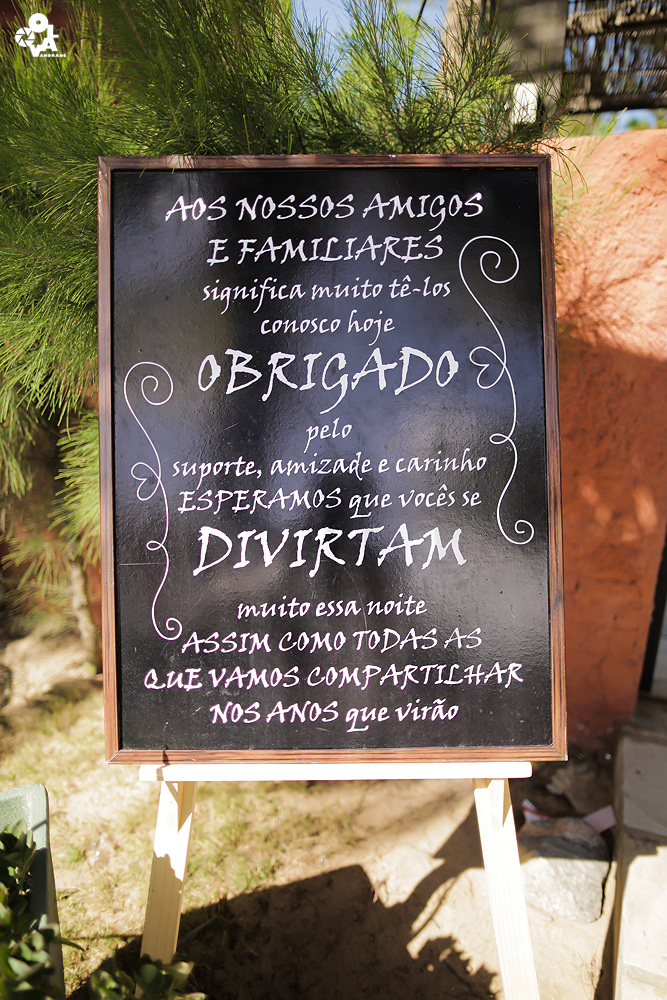 ANDRADE
AOS NOSSOS AMIGOS
E FAMILIARES
significa muito tê-los
conosco hoje
OBRIGADO
pelo
suporte, amizade e carinho
ESPERAMOS que vocês se
DIVIRTAM
muito essa noite
ASSIM COMO TODAS AS
QUE VAMOS COMPARTILHAR
NOS ANOS que virão